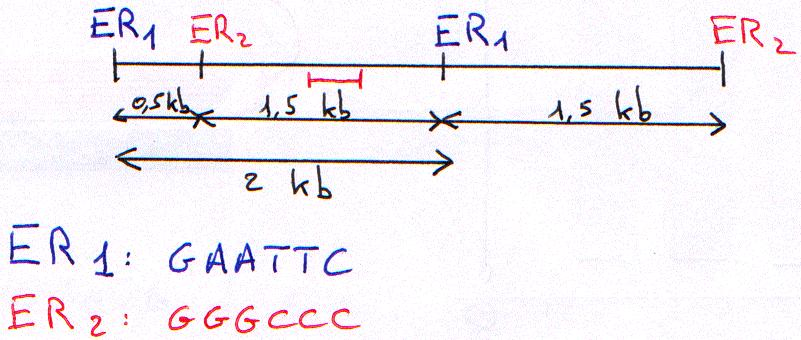 ER1 ER2 ER1 ER2
0,5kb 1,5 kb 1,5 kb
2 kb
ER1: GAATTC
ER2: GGGCCC